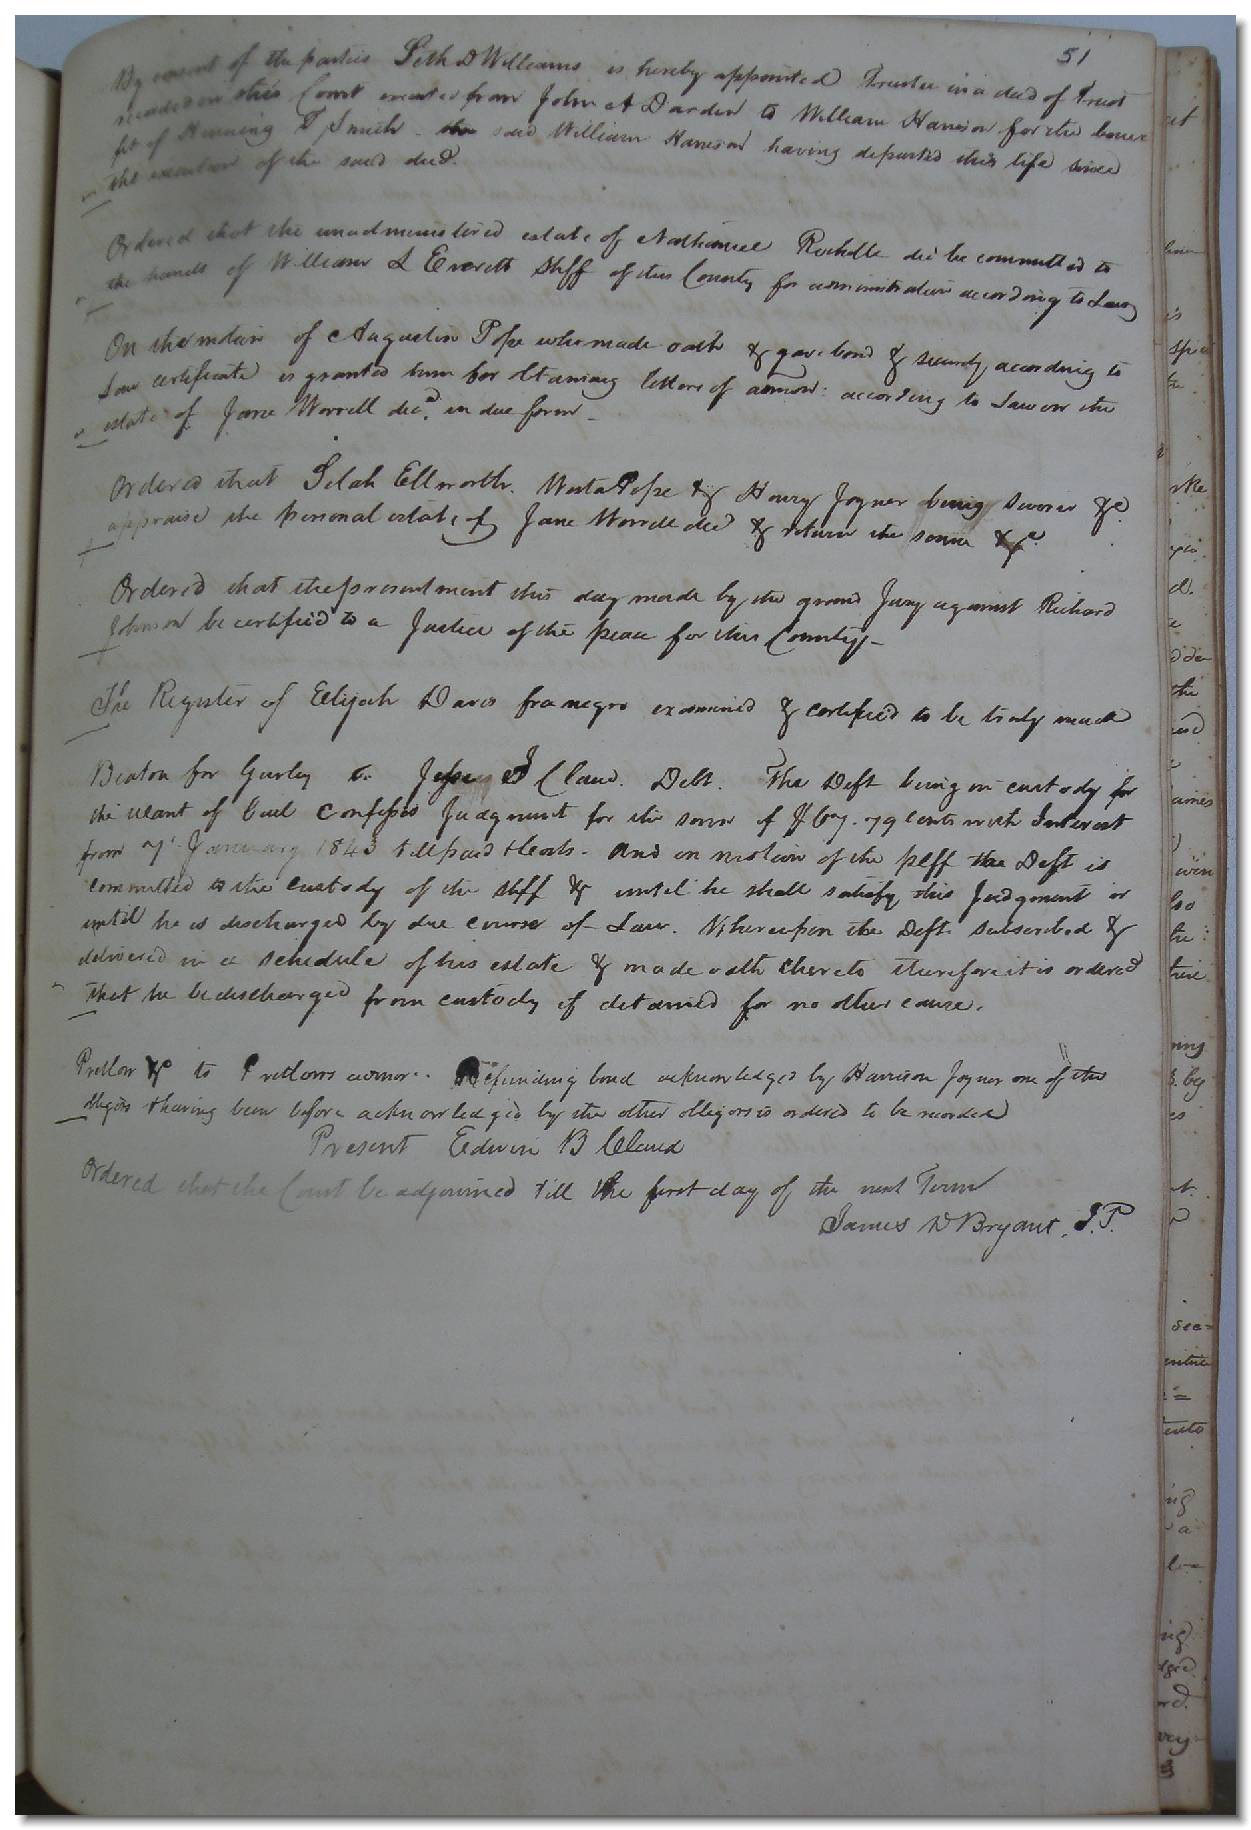 51
By consent of the parties Seth D Williams is hereby appointed Trustee in a deed of Trust
recorded in this Court executed from John A Darden to William Harrison for the bene
fit of Henning T Smith the said William Harrison having departed this life since
the execution of the said deed.
Ordered that the unadministered estate of Nathaniel Rochelle dec be committed to
the hands of William L Everett Shff of this County for administration according to Law
On the motion of Augustin Pope who made oath & gave bond & security according to
Law certificate is granted him for obtaining letters of admon: according to Law on the
estate of Jane Worrell decd. in due form
Ordered that Selah Ellworth. Pope & Henry Joyner being sworn &c.
appraise the personal estate of Jane Worrell decd & return the same &c.
Ordered that the presentment this day made by the grand Jury against Richard
Johnson be certified to a Justice of the peace for this County
The Register of Elijah Davis free negro examined & certified to be truly made
Beaton for Gurley v. Jesse Claud. Debt. The Deft being in custody for
the want of bail confesses Judgment for the sum of $67.79 cents with Interest
from 7 January 1843 till paid & Costs. And on motion of the plff the Deft is
committed to the custody of the Shff & until he shall satisfy this Judgment or
until he is discharged by due course of Law. Whereupon the Deft subscribed &
delivered in a schedule of his estate & made oath thereto therefore it is ordered
that he be discharged from custody if detained for no other cause.
Pretlow &c to Pretlows admor. Refunding bond acknowledged by Harrison Joyner one of the
obligors & having been before acknowledged by the other obligors is ordered to be recorded
Present Edwin B Claud
Ordered that the Court be adjourned till the first day of the next Term
James D Bryant. J.P.